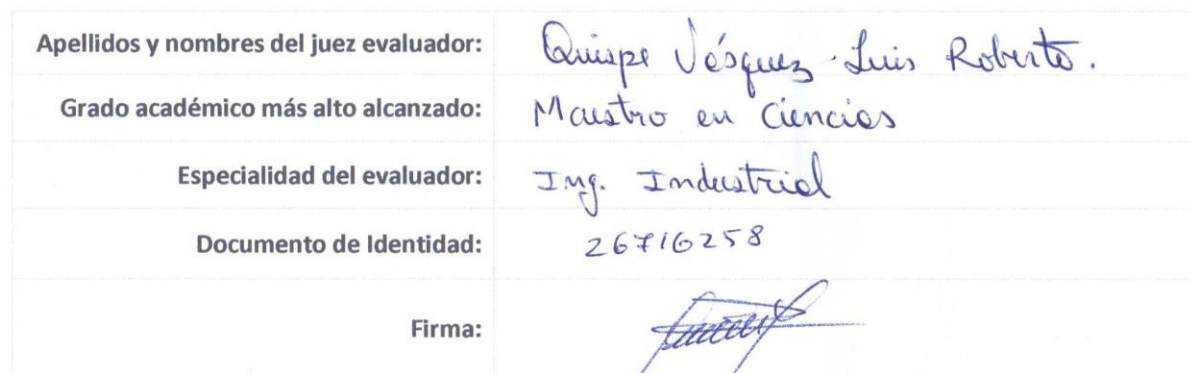 Apellidos y nombres del juez evaluador: Quispe Vásquez Luis Roberto.
Grado académico más alto alcanzado: Maestro en Ciencias
Especialidad del evaluador: Ing. Industrial
Documento de Identidad: 26716258
Firma: